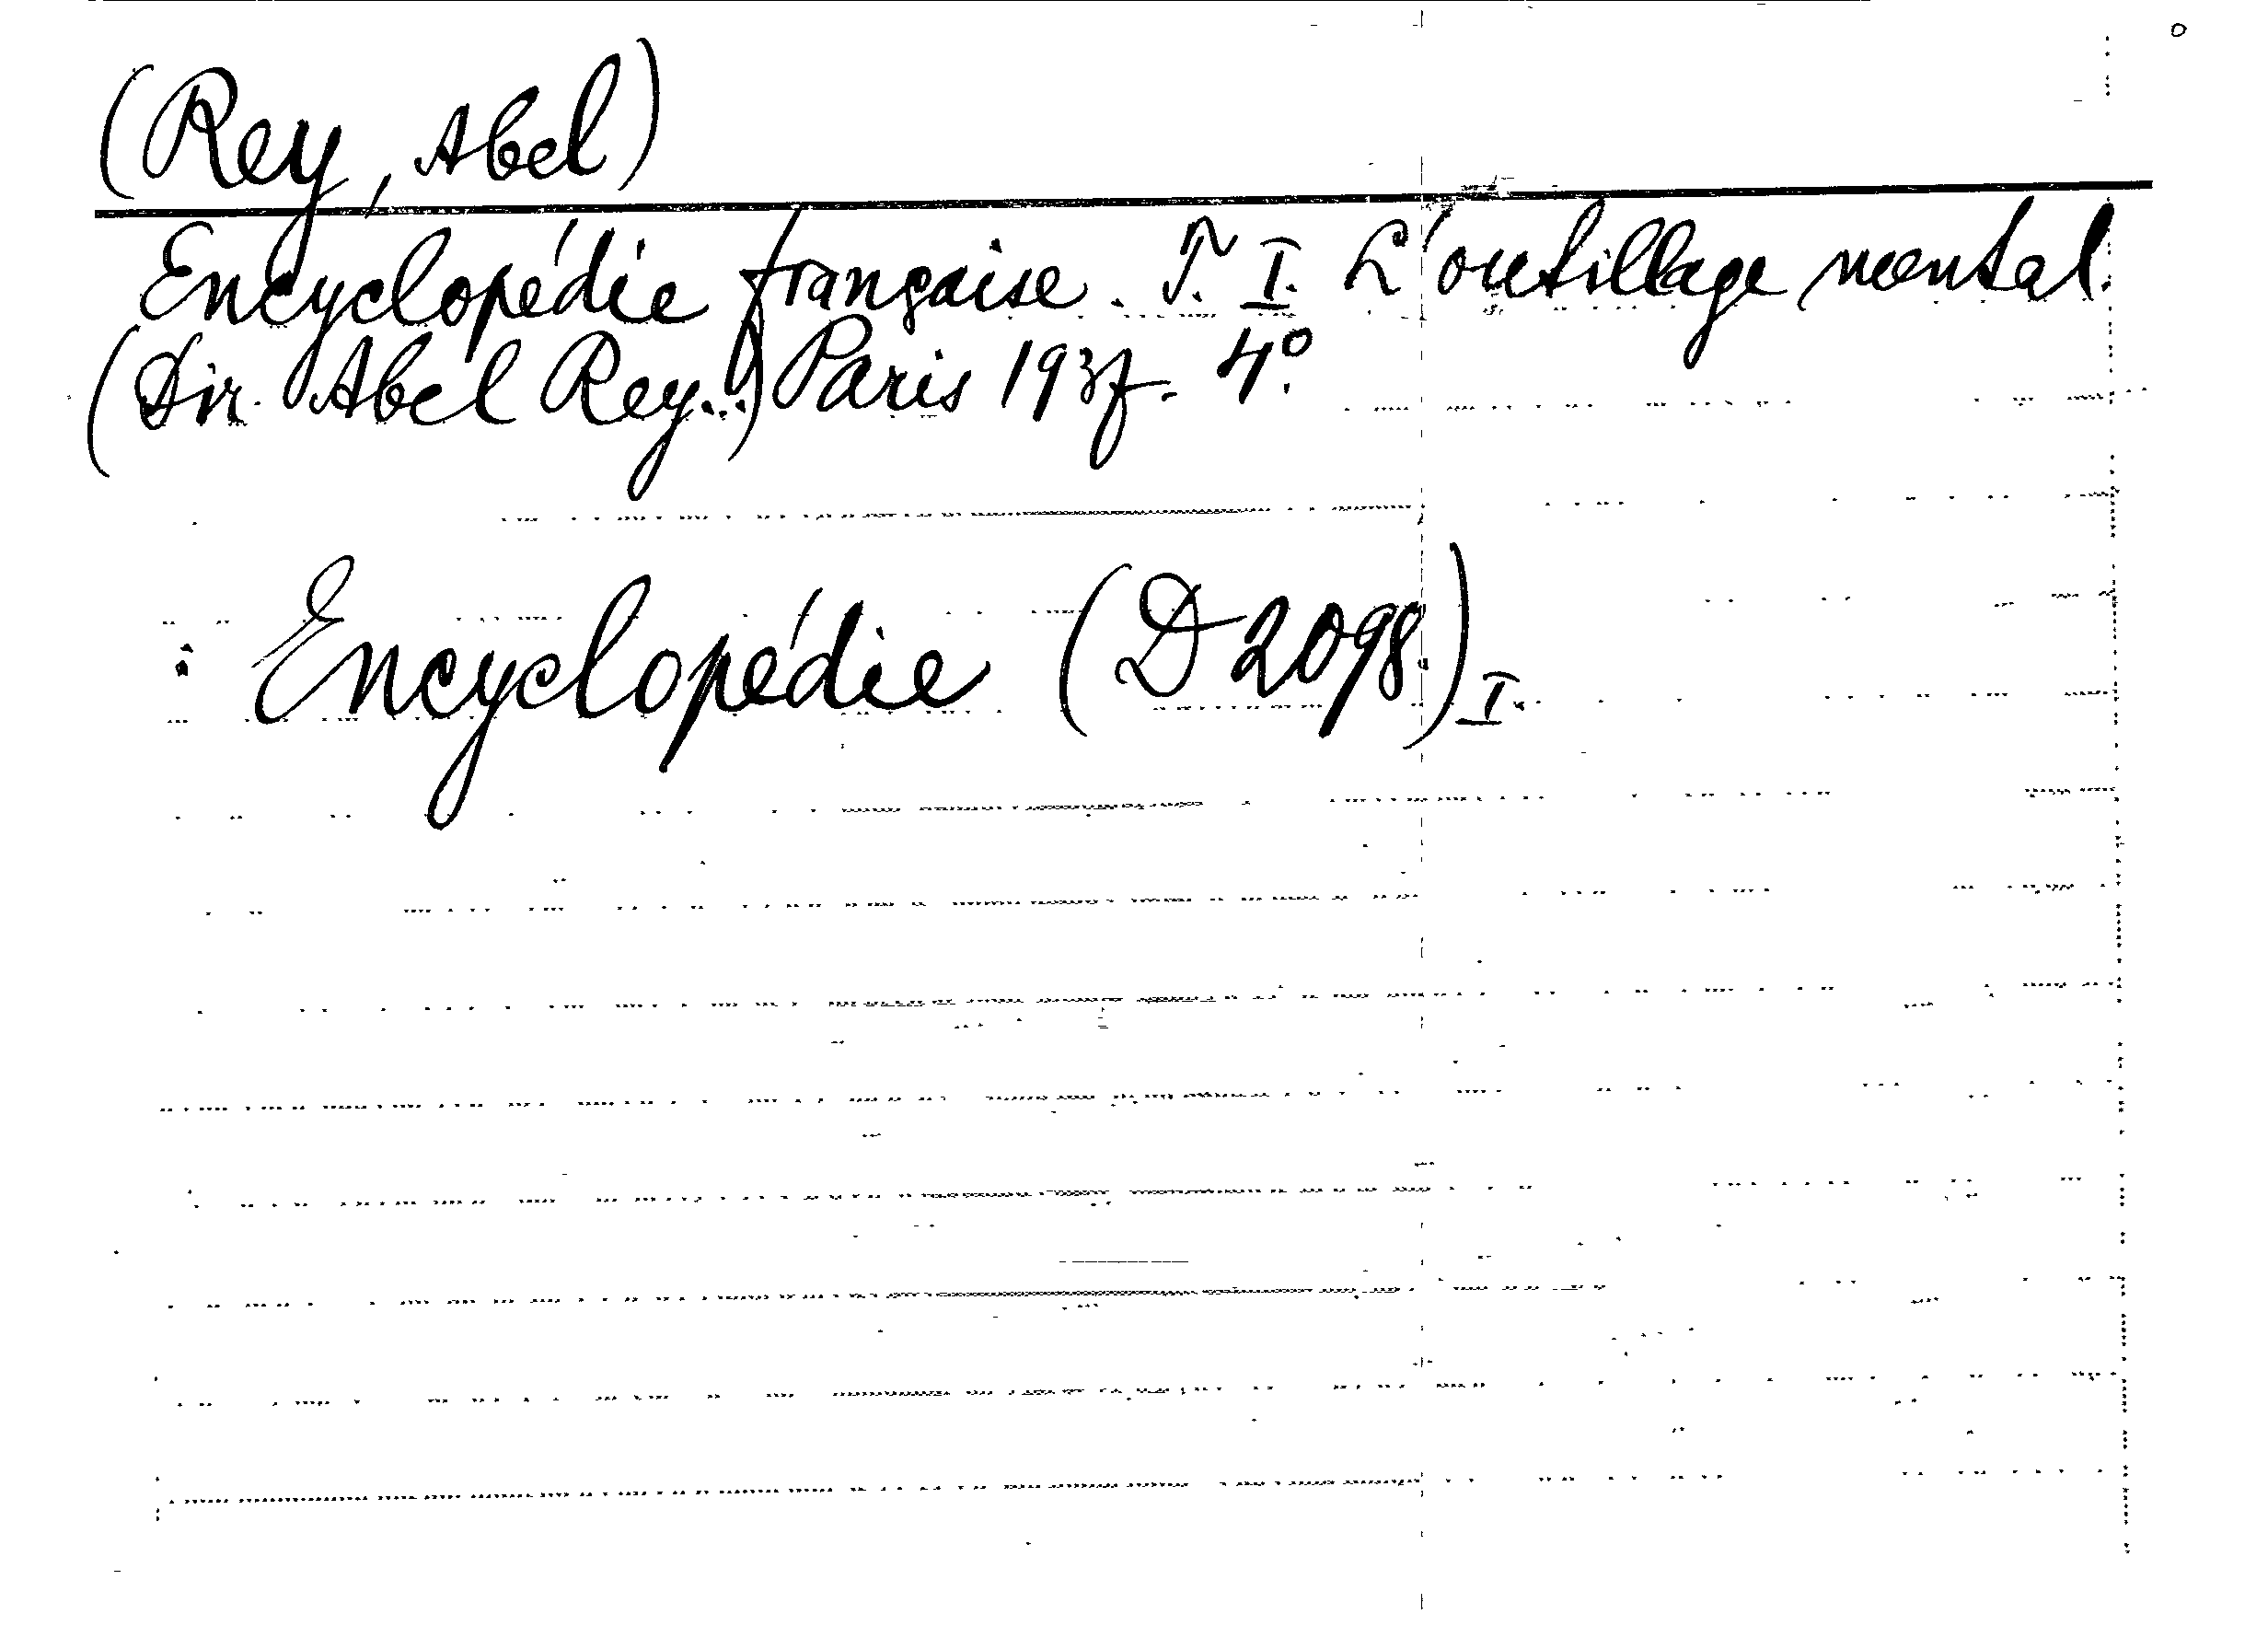 (Rey, Abel)
Encyclopédie française. T. I. L'outillage mental.
(Dir. Abel Rey...) Paris 1937. 4°.
Encyclopédie (D 2098) I.